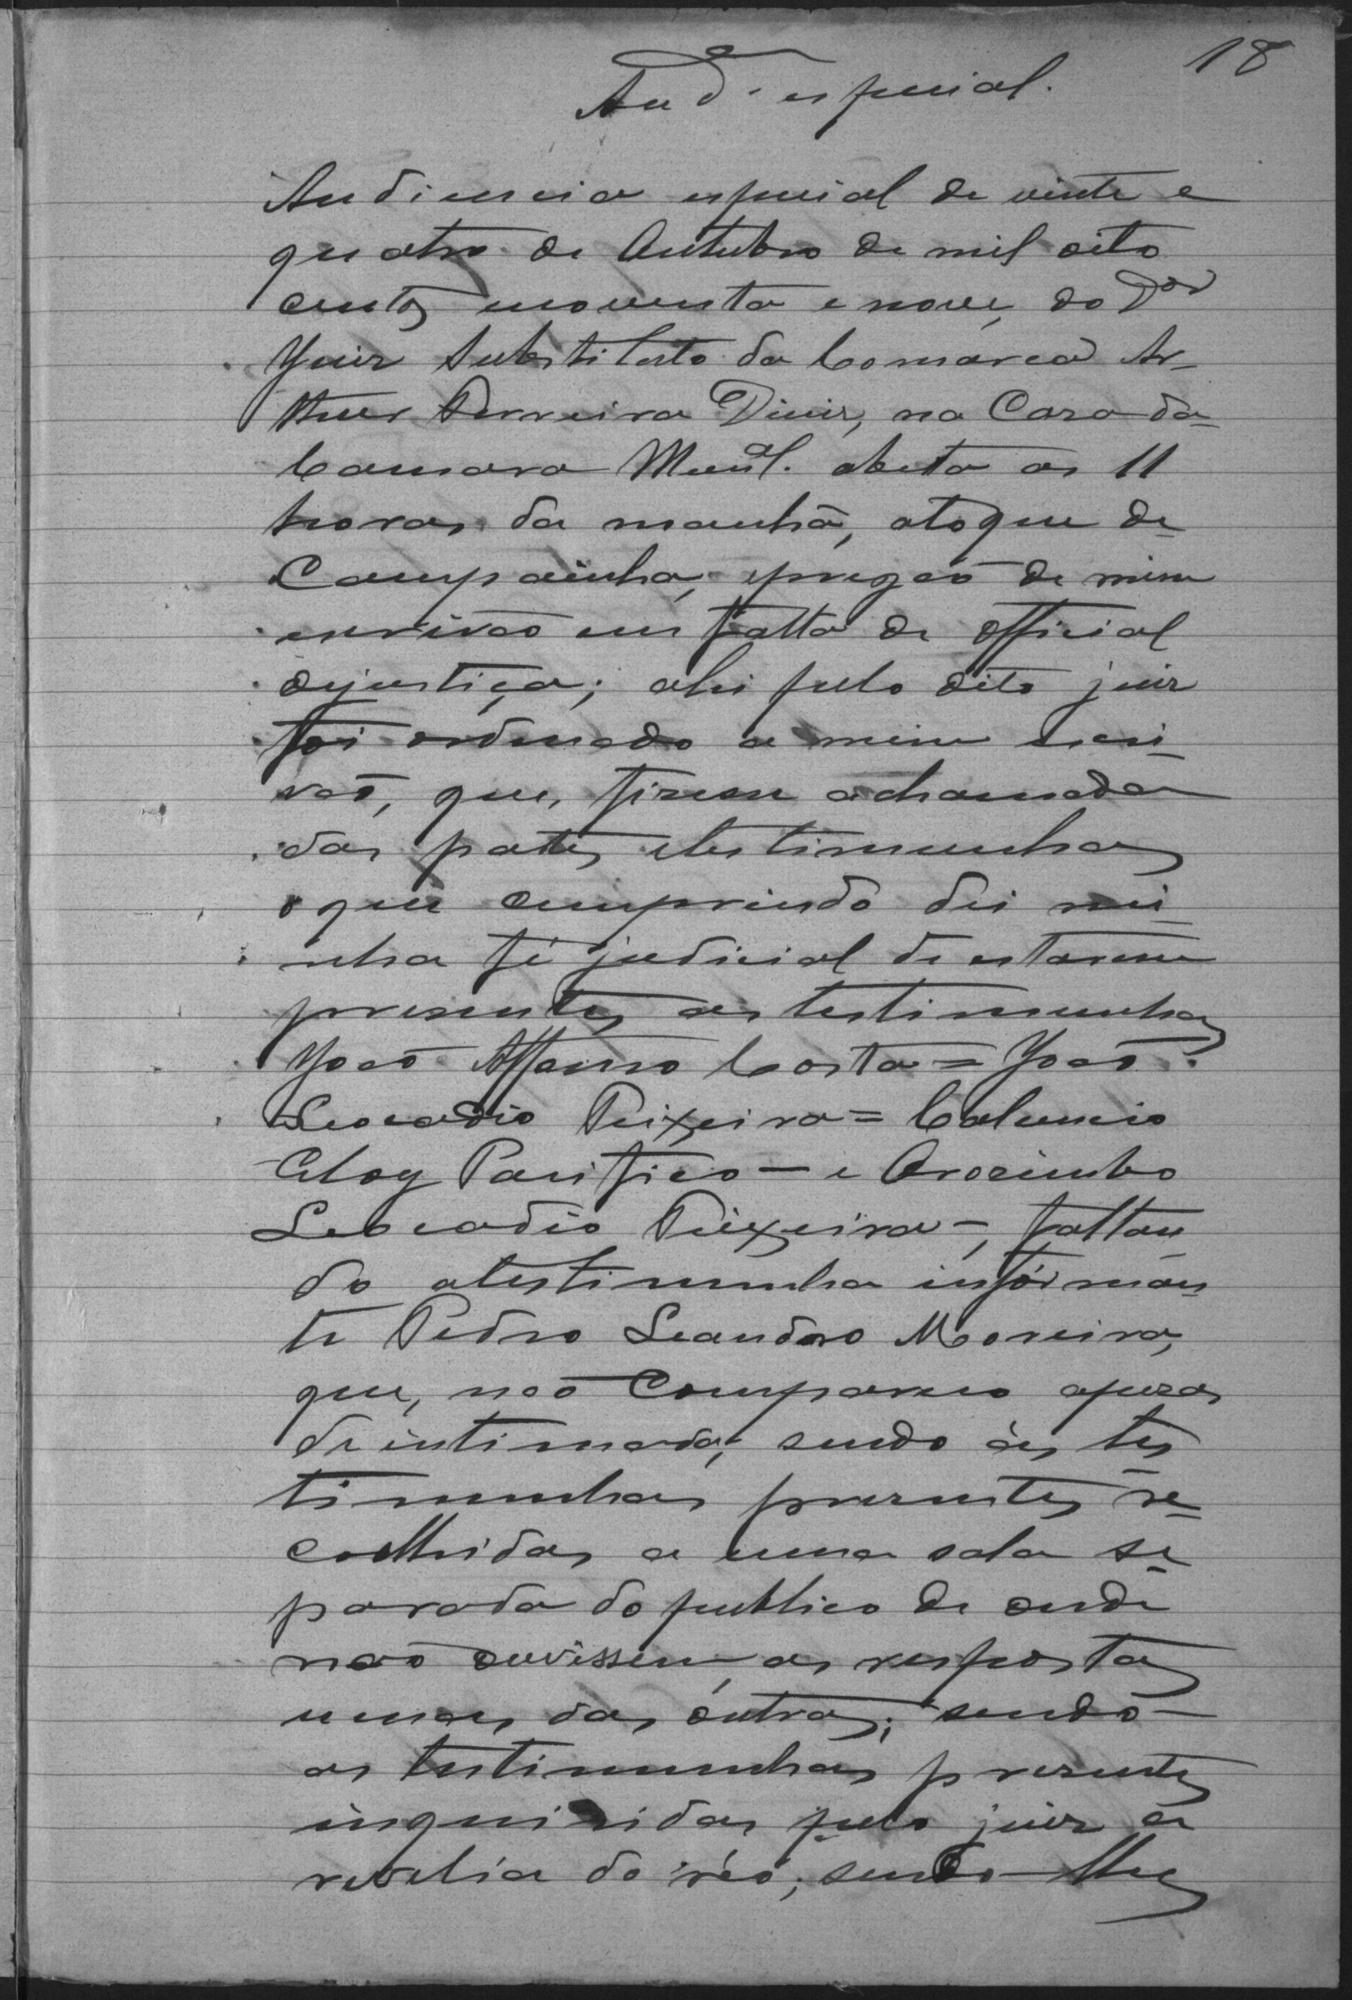 18
Aud.ª especial.
Audiencia especial de vinte e
quatro de Outubro de mil oito
centos enoventa e nove, do Dor
Juiz Substituto da Comarca Ar-
thur Ferreira Diniz, na Casa da
Camara Munal. aberta as 11
horas da manhã, atoque de
Campainha, epregão de mim
escrivão em falta de official
dejustiça; ahi pelo dito juiz
foi ordenado a mim escri-
vão, que, fizesse achamada
das partes etestimunhas
oque cumprindo dei mi-
nha fé judicial de estarem
presentes as testimunhas
João Affonso Costa = João
Leocadio Teixeira =
Eloy Pacifico — e Orozimbo
Leocadio Teixeira —, faltan-
do atestimunha informan-
te Pedro Leandro Moreira,
que, não Compareceo apezar
de intimada, sendo as tes-
timunhas presentes re-
colhidas a uma sala se-
parada do publico de onde
não ouvissem as respostas
umas das outras; sendo
as testimunhas presentes
inquiridas pelo juiz a
revelia do réo; sendo-lhes